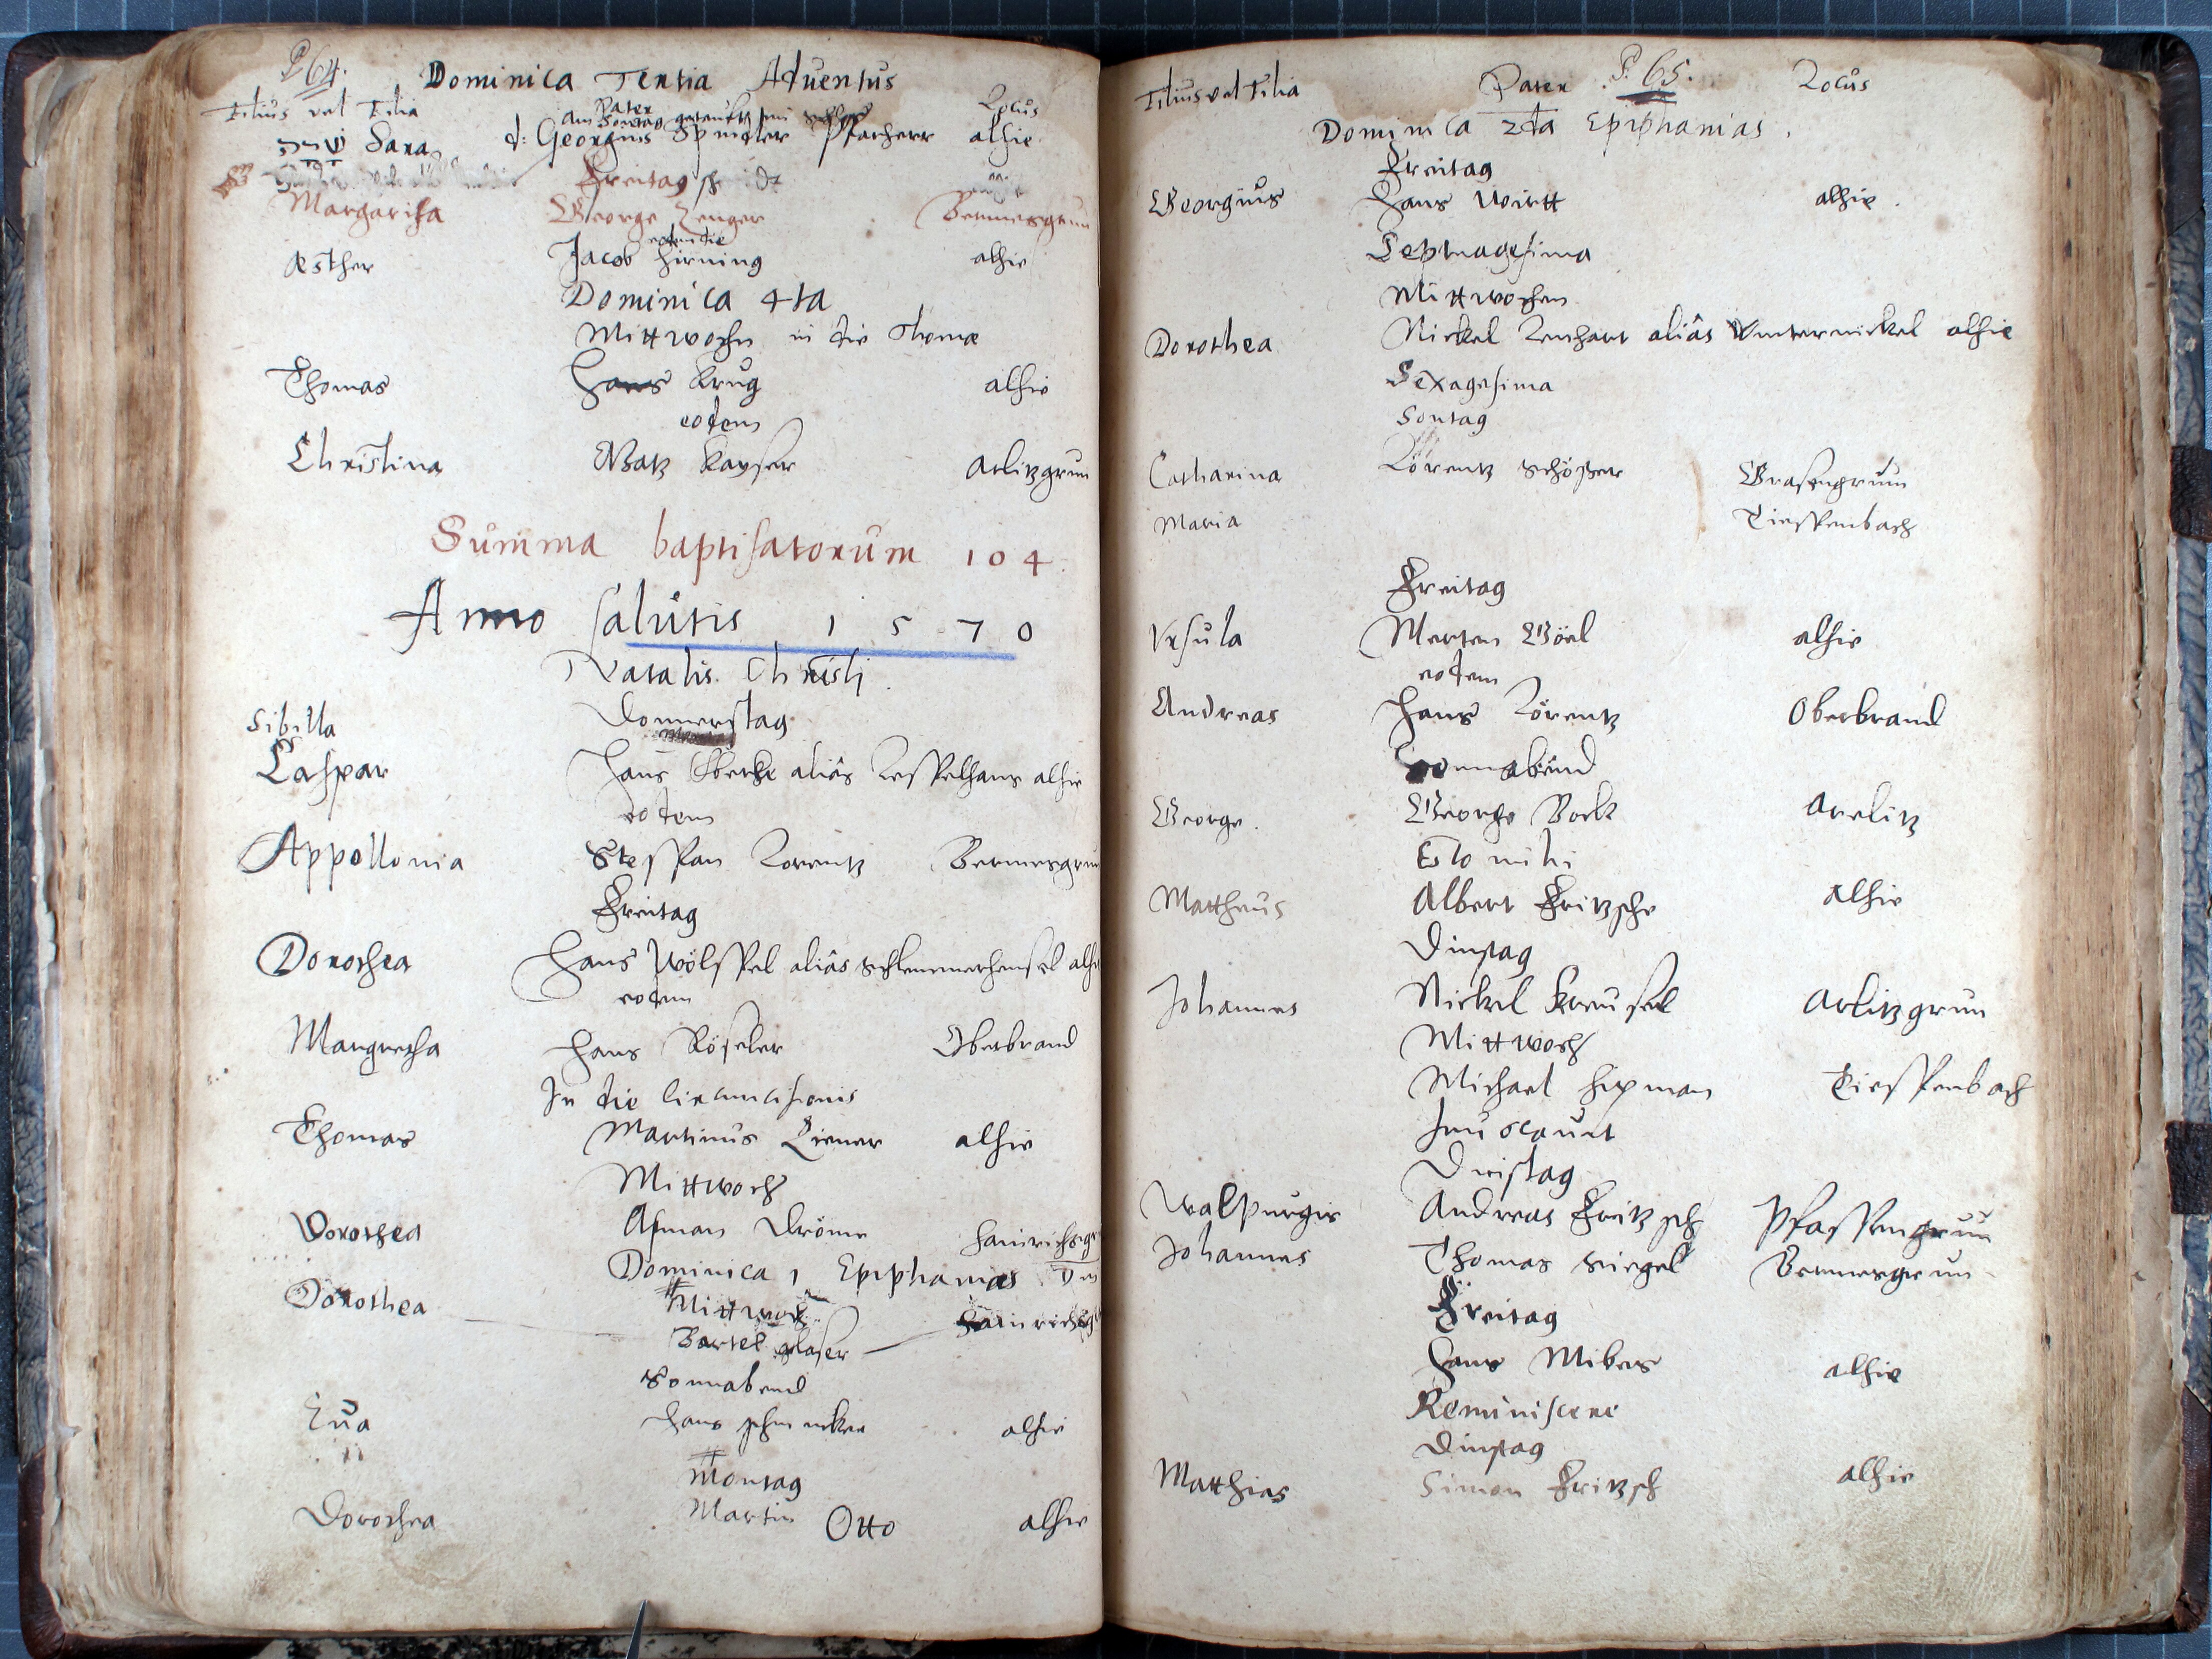 P 64.
Dominica Tertia Aduentus
Filius vel Filia Pater Locus
Am Sontag getaufft
Sara d: Georgius Spindler Pfarherr alhie
Freitag
Margarita George Zenger Bermesgrun
eodem die
Æsther Jacob Hirning alhie
Dominica 4ta
Mittwochn in die Thomæ
Thomas Hans Krug alhie
eodem
Christina Matz Kayser Arlitzgrun
Summa baptisatorum 104.
Anno salutis 1570
Natalis Christi
Sibilla Donnerstag
Caspar Hans alias Leffelhans alhie
eodem
Appollonia Steffan Lorentz Bermesgrun
Freitag
Dorothea Hans Wölffel alias alhie
eodem
Margretha Hans Röseler Oberbrand
In die Circumcisionis
Thomas Martinus Ziener alhie
Mittwoch
Dorothea Hainrichsgr
Dominica 1 Epiphanias
Mittwoch
Dorothea Bartel glaser Hainrichsg
Sonnabend
Eua Hans alhie
Montag
Dorothea Martin Otto alhie
Filius vel Filia Pater P. 65. Locus
Dominica 2da Epiphanias.
Freitag
Georgius Hans Wirtt alhie.
Septuagesima
Mittwochen
Dorothea Nickel Lenhart alias Wnternickel alhie
Sexagesima
Sontag
Catharina Lörentz Schösser Grasengrun
Maria Tieffenbach
Freitag
Vrsula Merten Göel alhie
eodem
Andreas Hans Lörentz Oberbrand
Sonnabend
George. George Bock Arelitz
Esto mihi
Mattheus Albert Fritzsche alhie
Dinstag
Johannes Nickel Kreusel Arlitzgrun
Mittwoch
Michael Hixman Tieffenbach
Inuocauit
Dinstag
Walpurgis Andreas Fritzsch Pfaffengrun
Johannes Thomas Siegel Bermesgrun
Freitag
Hans Mibes alhie
Reminiscere
Dinstag
Matthias Simon Fritzsch alhie